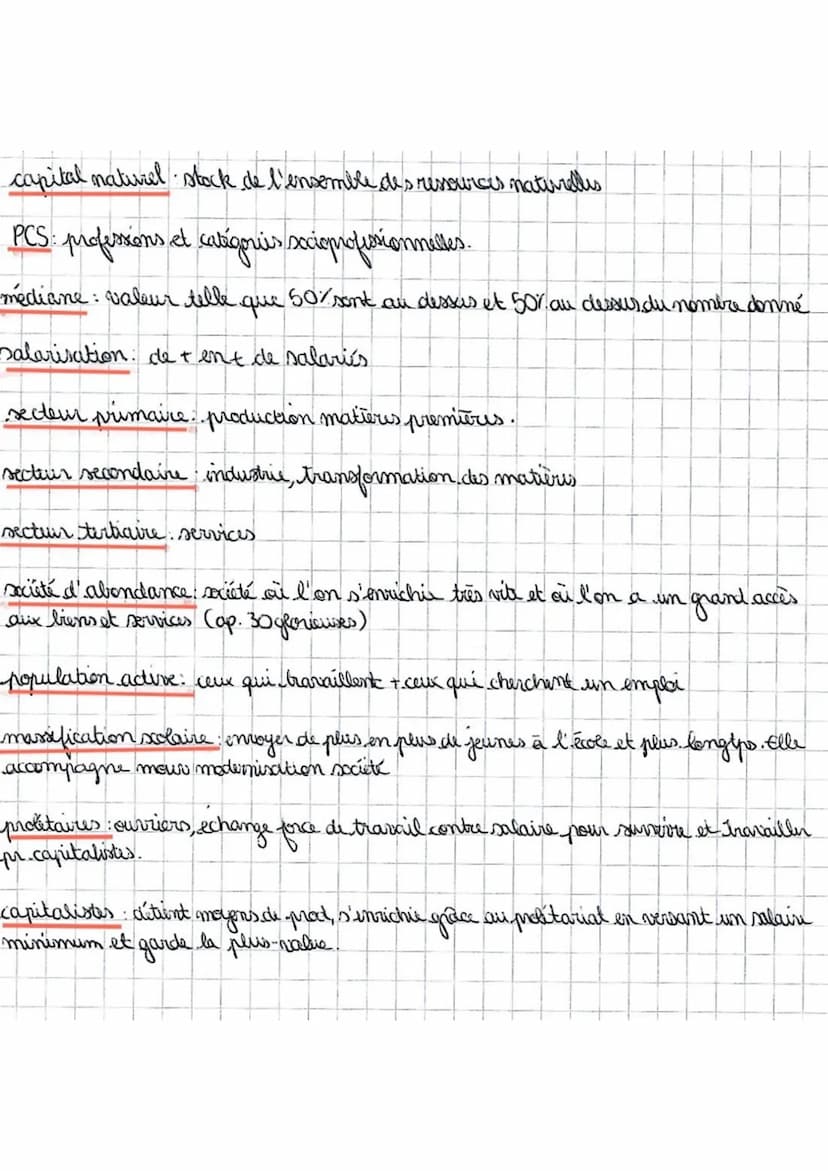 capital naturel : stock de l'ensemble des ressources naturelles
PCS : professions et catégories socioprofessionnelles.
médiane : valeur telle que 50% sont au dessus et 50% au dessus du nombre donné
salarisation : de + en + de salariés
secteur primaire : production matières premières.
secteur secondaire : industrie, transformation des matières
secteur tertiaire : services
société d'abondance : société où l'on s'enrichie très vite et où l'on a un grand accès
aux biens et services (ap. 30 glorieuses)
population active : ceux qui travaillent + ceux qui cherchent un emploi
massification scolaire : envoyer de plus en plus de jeunes à l'école et plus longtps. Elle
accompagne modernisation société
prolétaires : ouvriers, échange force de travail contre salaire pour survivre et travailler
pr. capitalistes.
capitalistes : détient moyens de prod, s'enrichie grâce au prolétariat en versant un salaire
minimum et garde la plus-value.